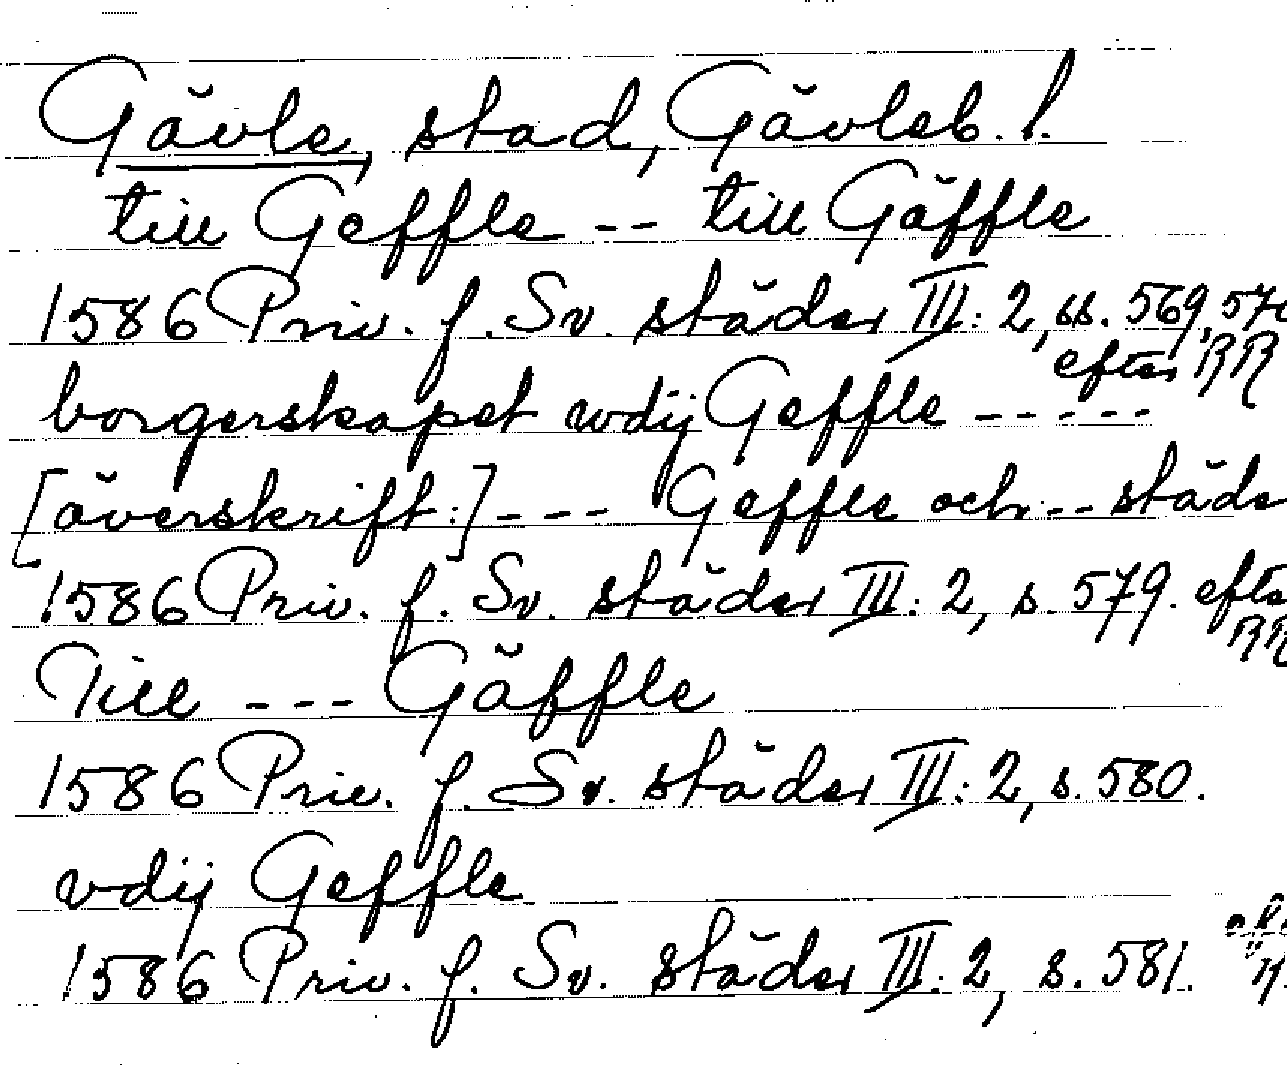 Gävle, stad, Gävleb. l.
till Geffle -- till Gäffle
1586 Priv. f. Sv. städer III: 2, ss. 569, 570
efter RR
borgerskapet wdij Geffle -----
[överskrift:] --- Geffle och -- städe
1586 Priv. f. Sv. städer III: 2, s. 579. efte
RR
Till --- Gäffle
1586 Priv. f. Sv. städer III: 2, s. 580.
vdij Geffle
1586 Priv. f. Sv. städer III: 2, s. 581.